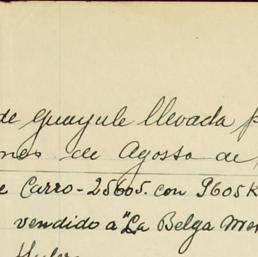 de guayule llevada p
nes de Agosto de
e Carro-25605. con 9605 K
vendido a "La Belga Mex
Hulera